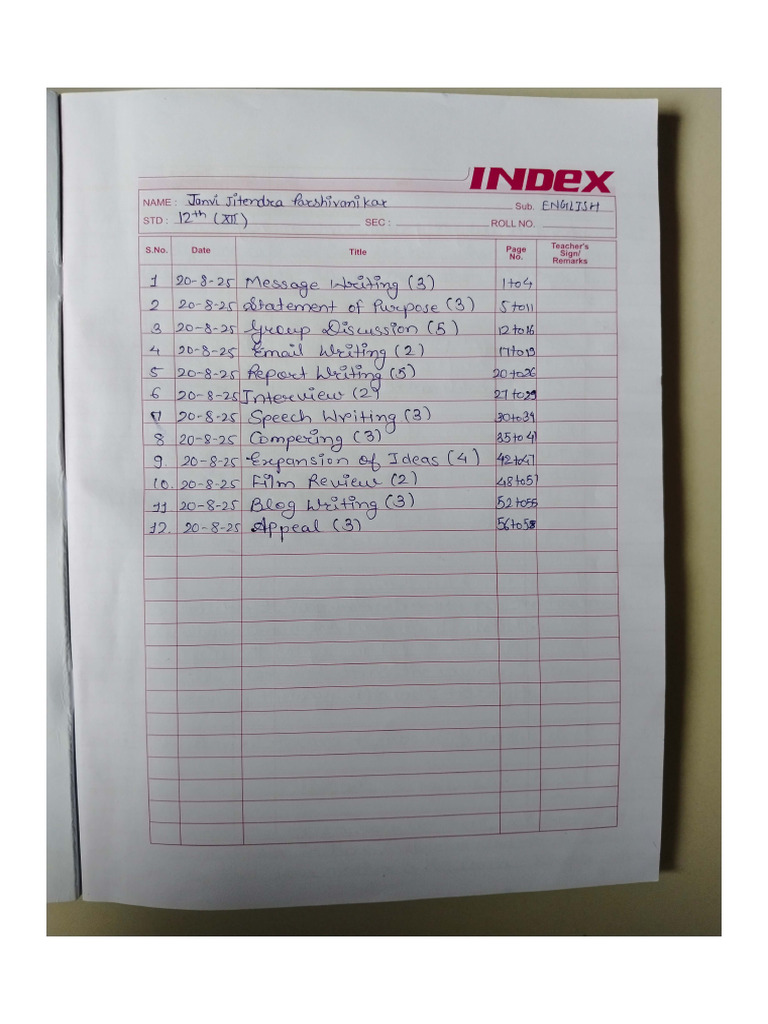 INDEX
NAME : Janvi Jitendra Parshivanikar Sub. ENGLISH
STD : 12th (XII) SEC : ROLL NO.
S.No. Date Title Page No. Teacher's Sign/ Remarks
1 20-8-25 Message Writing (3) 1 to 4
2 20-8-25 Statement of Purpose (3) 5 to 11
3 20-8-25 Group Discussion (5) 12 to 16
4 20-8-25 Email Writing (2) 17 to 19
5 20-8-25 Report Writing (5) 20 to 26
6 20-8-25 Interview (2) 27 to 29
7 20-8-25 Speech Writing (3) 30 to 34
8 20-8-25 Compering (3) 35 to 41
9. 20-8-25 Expansion of Ideas (4) 42 to 47
10. 20-8-25 Film Review (2) 48 to 51
11 20-8-25 Blog Writing (3) 52 to 55
12. 20-8-25 Appeal (3) 56 to 58